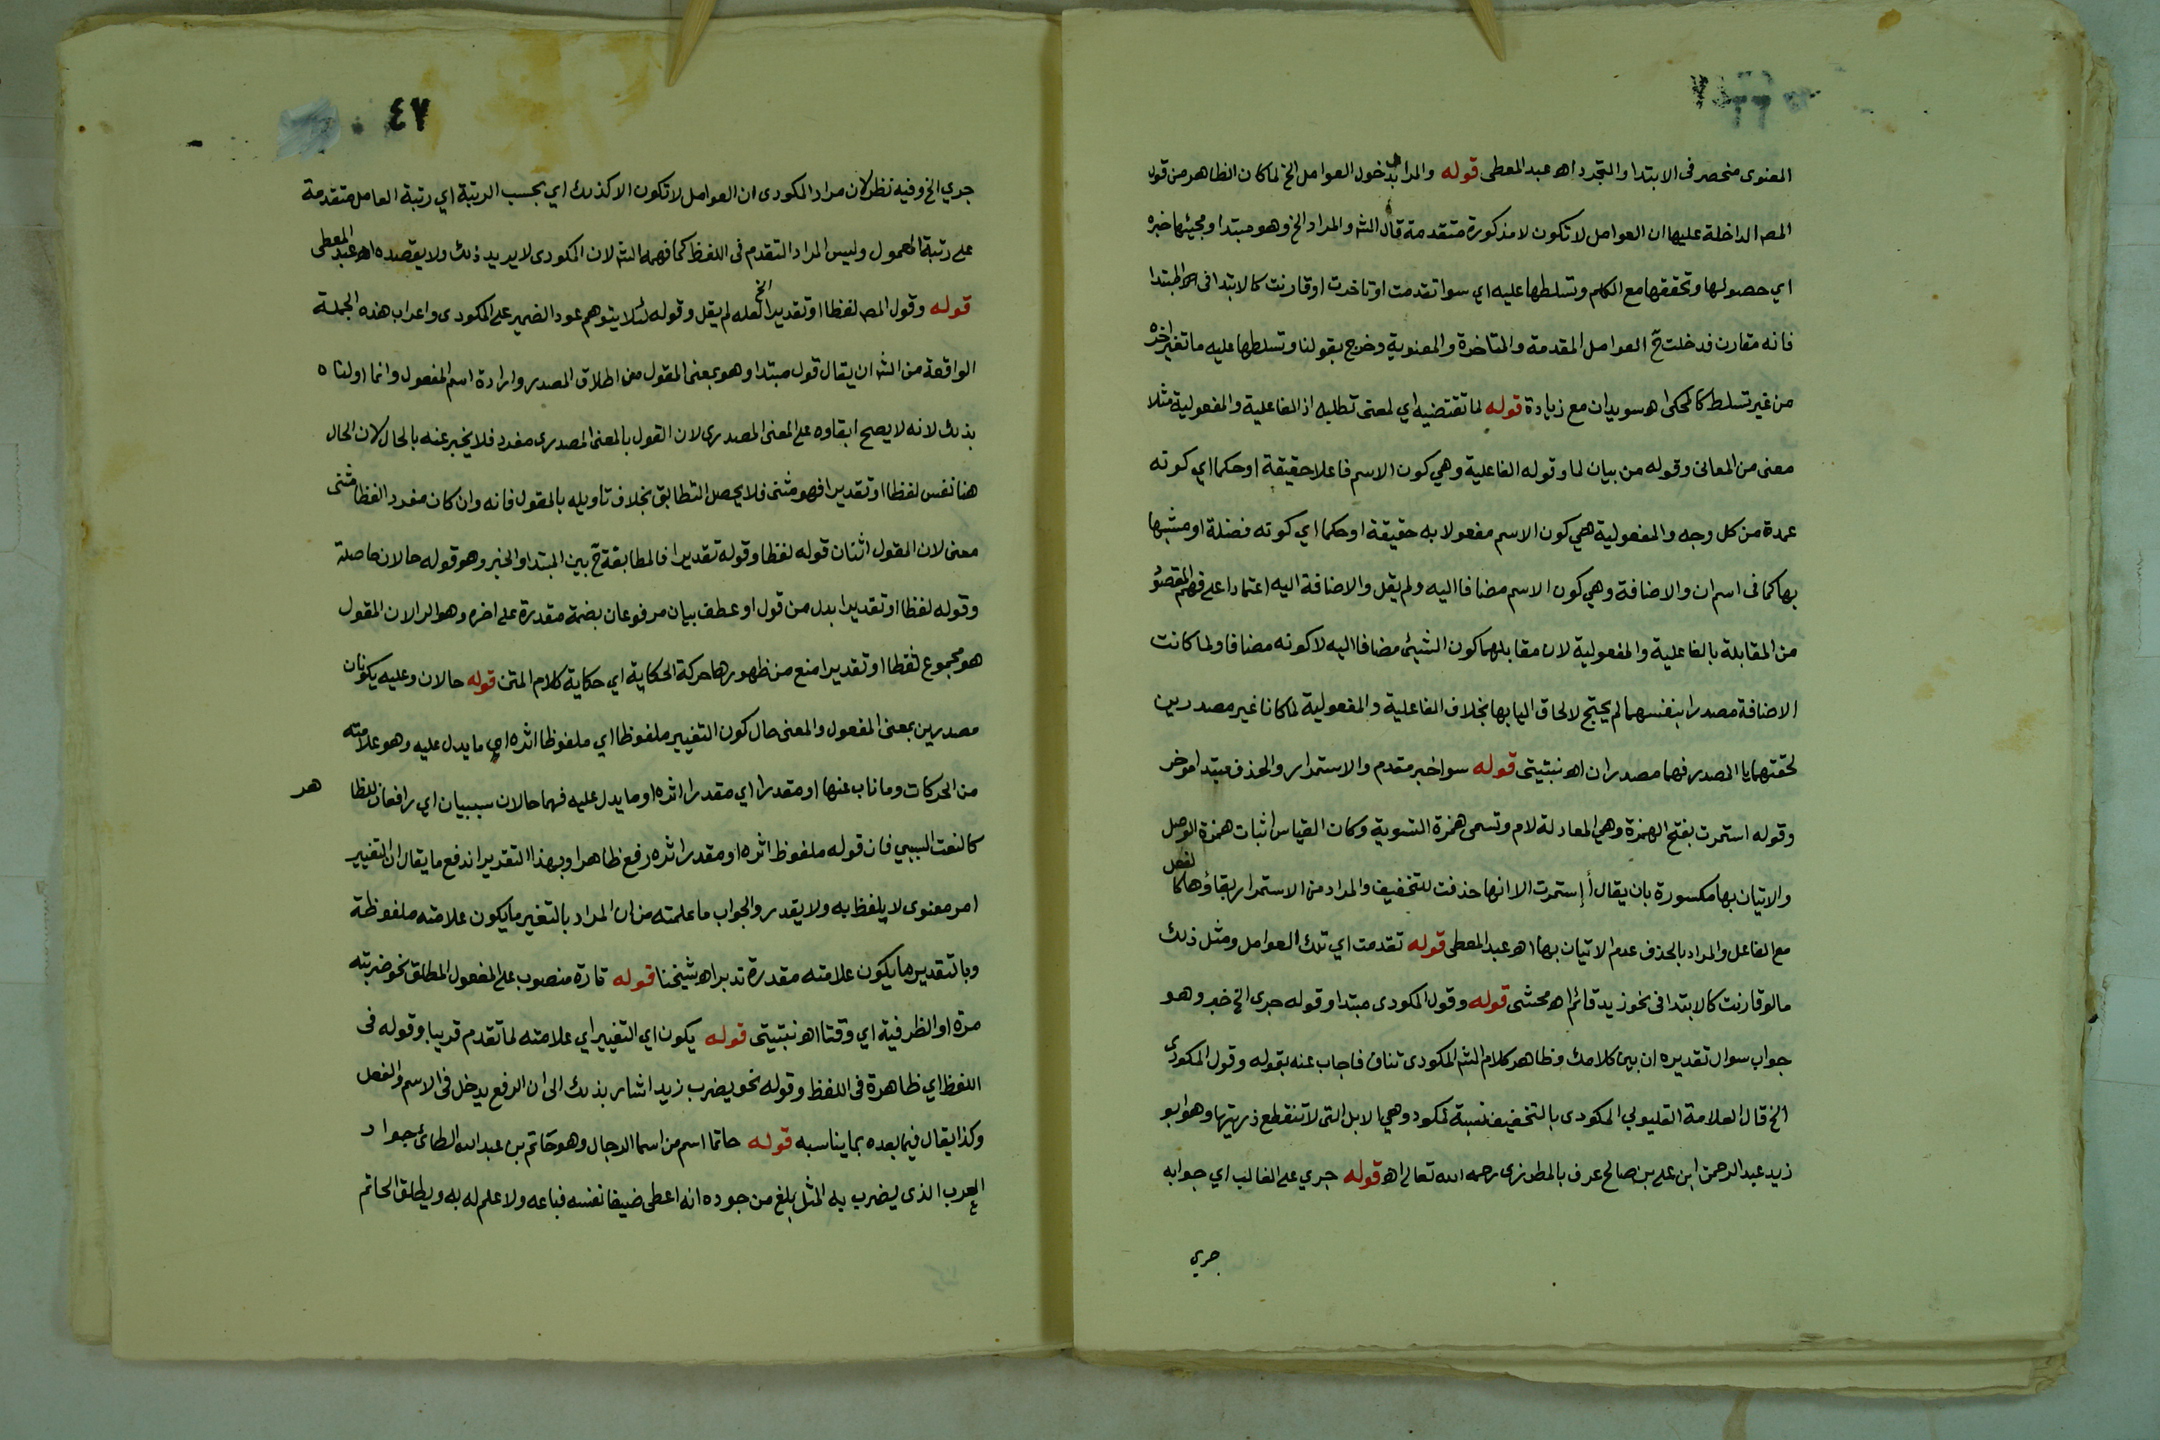 المعنوى منحصر فى الابتدا والتجرد اهـ عبد المعطى قوله والمراد بدخول العوامل الخ لما كان الظاهر من قول
المصـ الداخلة عليها ان العوامل لا تكون لا مذكورة متقدمة قال الشـ والمراد الخ وهو مبتدا ومجيئها خبره
اي حصولها وتحققها مع الكلم وتسلطها عليه اي سوا تقدمت او تاخرت او قارنت كالابتدا فى المبتدا
فانه مقارن فدخلت ح العوامل المقدمة والمتاخرة والمعنوية وخرج بقولنا وتسلطها عليه ما تغير اخره
من غير تسلط كالمحكى اهـ سويدان مع زيادة قوله لما تقتضيه اي لمعنى تطلبه اذ الفاعلية والمفعولية مثلا
معنى من المعانى وقوله من بيان لما وقوله الفاعلية وهي كون الاسم فاعلا حقيقة او حكما اي كونه
عمدة من كل وجه والمفعولية هي كون الاسم مفعولا به حقيقة او حكما اي كونه فضلة او مشبها
بها كما فى اسم ان والاضافة وهي كون الاسم مضافا اليه ولم يقل والاضافة اليه اعتمادا على فهم المقصود
من المقابلة بالفاعلية والمفعولية لان مقابلهما كون الشيئ مضافا اليه لا كونه مضافا ولما كانت
الاضافة مصدرا بنفسها لم يحتج لالحاق اليا بها بخلاف الفاعلية والمفعولية لما كانا غير مصدرين
لحقتهما يا المصدر فهما مصدران اهـ نبتيتى قوله سوا خبر مقدم والاستمرار والحذف مبتدا موخر
وقوله استمرت بفتح الهمزة وهي المعادلة لام وتسمى همزة التسوية وكان القياس اثبات همزة الوصل
والاتيان بها مكسورة بان يقال أ إستمرت الا انها حذفت للتخفيف والمراد من الاستمرار بقاؤها كالفعل
مع الفاعل والمراد بالحذف عدم الاتيان بها اهـ عبد المعطى قوله تقدمت اي تلك العوامل ومثل ذلك
ما لو قارنت كالابتدا فى نحو زيد قائم اهـ محشى قوله وقول المكودى مبتدا وقوله جرى الخ خبر وهو
جواب سوال تقديره ان بين كلامك وظاهر كلام الشـ المكودى تناف فاجاب عنه بقوله وقول المكودي
الخ قال العلامة القليوبي المكودى بالتخفيف نسبة لمكود وهي الابل التى لا تنقطع ذريتها وهو ابو
زيد عبد الرحمن ابن على بن صالح عرف بالمطرزى رحمه الله تعالى اهـ قوله جري على الغالب اي جوابه
جري
٤٧
جري الخ وفيه نظر لان مراد المكودى ان العوامل لا تكون الا كذلك اي بحسب الرتبة اي رتبة العامل متقدمة
على رتبة المعمول وليس المراد التقدم فى اللفظ كما فهمه الشـ لان المكودى لا يريد ذلك ولا يقصده اهـ عبد المعطى
قوله وقول المصـ لفظا او تقديرا الخ لعله لم يقل وقوله لئلا يتوهم عود الضمير على المكودى واعراب هذه الجملة
الواقعة من الشـ ان يقال قول مبتدا وهو بمعنى المقول من اطلاق المصدر وارادة اسم المفعول وانما اولناه
بذلك لانه لا يصح ابقاوه على المعنى المصدرى لان القول بالمعنى المصدرى مفرد فلا يخبر عنه بالحال لان الحال
هنا نفس لفظا او تقديرا فهو مثنى فلا يحصل التطابق بخلاف تاويله بالمقول فانه وان كان مفرد الفظا مثنى
معنى لان المقول اثنان قوله لفظا وقوله تقديرا فالمطابقة ح بين المبتدا والخبر وهو قوله حالان حاصلة
وقوله لفظا او تقديرا بدل من قول او عطف بيان مرفوعان بضمة مقدرة على اخره وهو الرا لان المقول
هو مجموع لفظا او تقديرا منع من ظهورها حركة الحكاية اي حكاية كلام المتن قوله حالان وعليه يكونان
مصدرين بمعنى المفعول والمعنى حال كون التغيير ملفوظا اي ملفوظا اثره اي ما يدل عليه وهو علامته
من الحركات وما ناب عنها او مقدرا اي مقدرا اثره او ما يدل عليه فهما حالان سببيان اي رافعان لظا هر
كالنعت السببي فان قوله ملفوظ اثره او مقدر اثره رفع ظاهرا وبهذا التقدير اندفع ما يقال ان التغيير
امر معنوى لا يلفظ به ولا يقدر والجواب ما علمته من ان المراد بالتغير ما يكون علامته ملفوظة
وبالتقدير ما يكون علامته مقدرة تدبر اهـ شيخنا قوله تارة منصوب على المفعول المطلق نحو ضربته
مرة او الظرفية اي وقتا اهـ نبتيتى قوله يكون اي التغيير اي علامته لما تقدم قريبا وقوله فى
اللفظ اي ظاهرة فى اللفظ وقوله نحو يضرب زيد اشار بذلك الى ان الرفع يدخل فى الاسم والفعل
وكذا يقال فيما بعده بما يناسبه قوله حاتما اسم من اسما الرجال وهو حاتم بن عبد الله الطائى جواد
العرب الذى يضرب به المثل بلغ من جوده انه اعطى ضيفا نفسه فباعه ولا علم له به ويطلق الحاتم